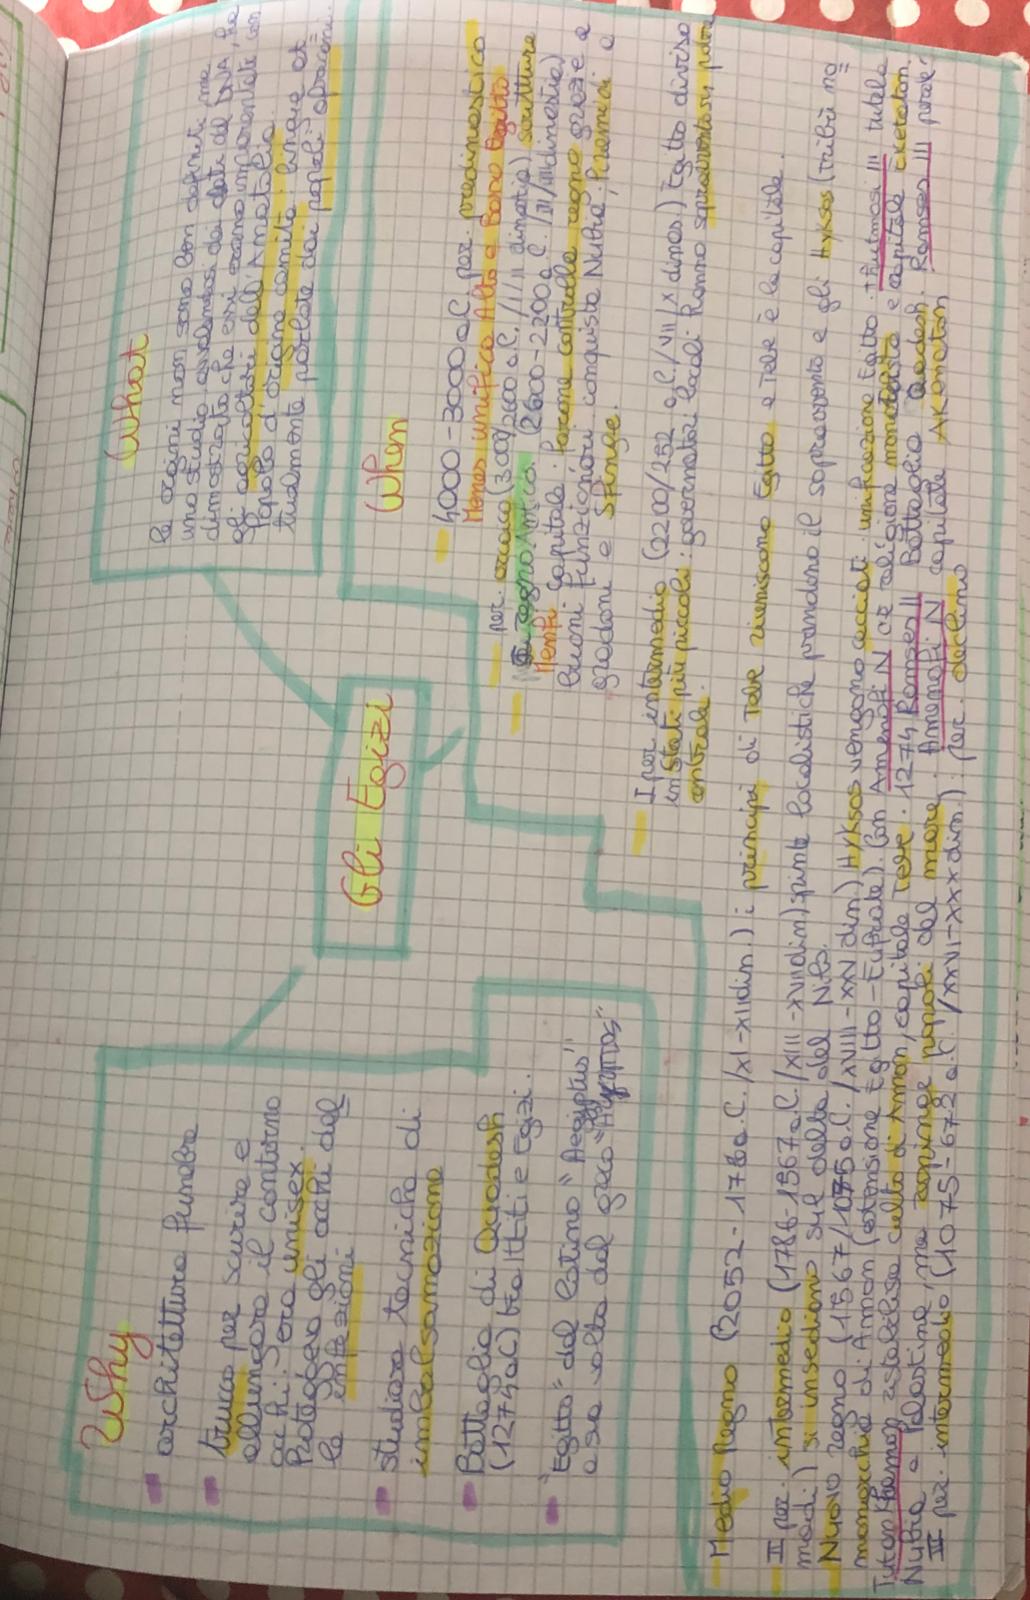 Gli Egizi
Why
architettura funebre
trucco per scurire e
allungare il contorno
occhi: era unisex.
Proteggeva gli occhi dal
le infezioni.
studiare tecniche di
imbalsamazione
Battaglia di Quadesh
(1274 aC) tra Ittiti e Egizi.
"Egitto" dal latino "Aegiptus"
a sua volta dal greco
What
le origini non sono ben definite ma
uno studio avvalendosi dei dati del DNA, ha
dimostrato che essi erano imparentati con
gli agricoltori dell'Anatolia.
Popolo d'origine camita: lingue at
tualmente parlate dai popoli africani.
When
4000-3000 aC per. predinastico
Menes unifica Alto e Basso Egitto
per. arcaico (3000/2600 a.C. /I/II dinastia) scritture
Regno Antico. (2600-2200 a.C. /III/ dinastia)
Menfi capitale. Faraone controlla regno grazie a
buoni funzionari conquista Nubia, Piramidi a
gradoni e Sfinge.
I per intermedio (2200/252 a.C/VII/X dinas.) Egitto diviso
in Stati più piccoli: governatori locali hanno sopravvento su
centrale.
Medio Regno (2052-1786 a.C. /XI-XII dim.) i principi di Tebe riuniscono Egitto e Tebe è la capitale.
II per. intermedio (1786-1567 a.C. /XIII-XVII dim) spinte localistiche prendono il sopravvento e gli Hyksos (tribù no
madi) si insediano sul delta del Nilo.
Nuovo regno (1567/1075 a.C. /XVIII-XXV dim.) Hyksos vengono cacciati: unificazione Egitto. Thutmosi III tutela
monarchia di Amon (estensione Egitto-Eufrate). Con Amenofi IV c'è religione monoteista e capitale Aketaton.
Tutankhamon ristabilisce culto di Amon, capitale Tebe. 1274 Ramses II Battaglia Quadesh. Ramses III perde
Nubia e Palestina, ma respinge popoli del mare. Amenofi IV capitale Akenaton
III per. intermedio (1075-672 a.C. /XXVI-XXX dim.): per. declino